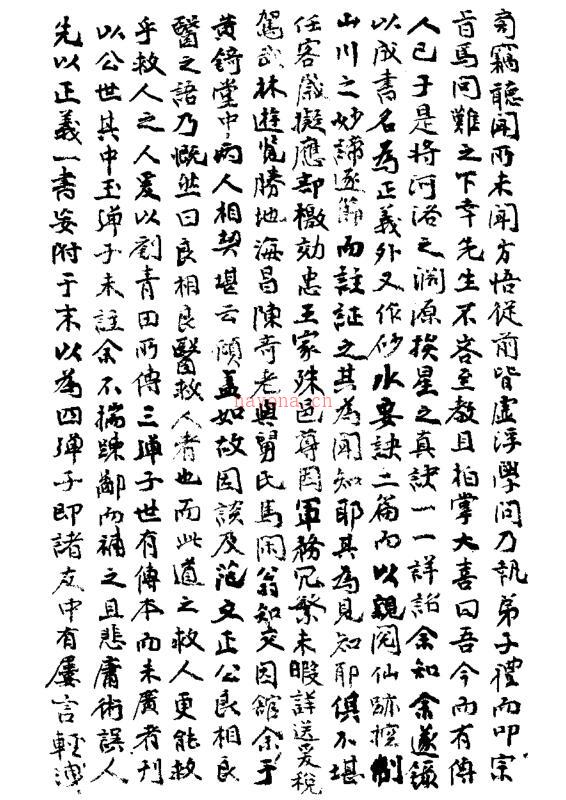 旬竊聽聞所未聞方悟從前皆虛浮學問乃執弟子禮而叩宗
旨焉問難之下幸先生不吝至教且拍掌大喜曰吾今而有傳
人已于是將河洛之淵源挨星之真訣一一詳語余知余遂鎔
以成書名為正義外又作砂水要訣二篇而以親閱仙跡控制
山川之妙諦逐篇而註証之其為聞知耶其為見知耶俱不堪
任客歲擬應部檄効忠王家殊邑尊因軍務冗繁未暇詳送爰稅
駕武林遊覽勝地海昌陳奇老與舅氏馬閑翁知交因館余于
黃錡堂中兩人相契堪云傾蓋如故因談及范文正公良相良
醫之語乃慨然曰良相良醫救人者也而此道之救人更能救
乎救人之人爰以劉青田所傳三彈子世有傳本而未廣者刊
以公世其中玉彈子未註余不揣踈鄙而補之且悲庸術誤人
先以正義一書妄附于末以為四彈子即諸友中有屢言輕洩
hayona.cn